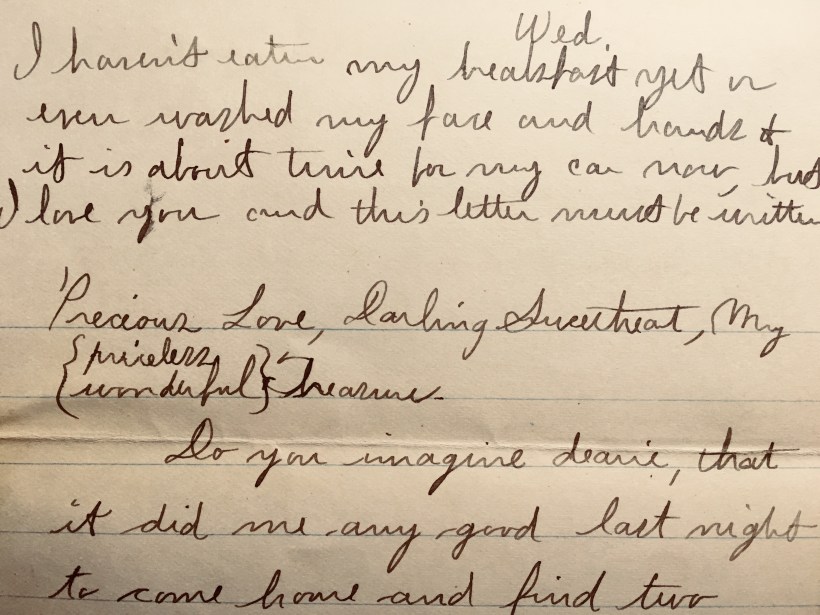 Wed.
I haven't eaten my breakfast yet or
even washed my face and hands &
it is about time for my car now, but
I love you and this letter must be written
Precious Love, Darling Sweetheart, My
{priceless
{wonderful} Treasure.
Do you imagine dearie, that
it did me any good last night
to come home and find two